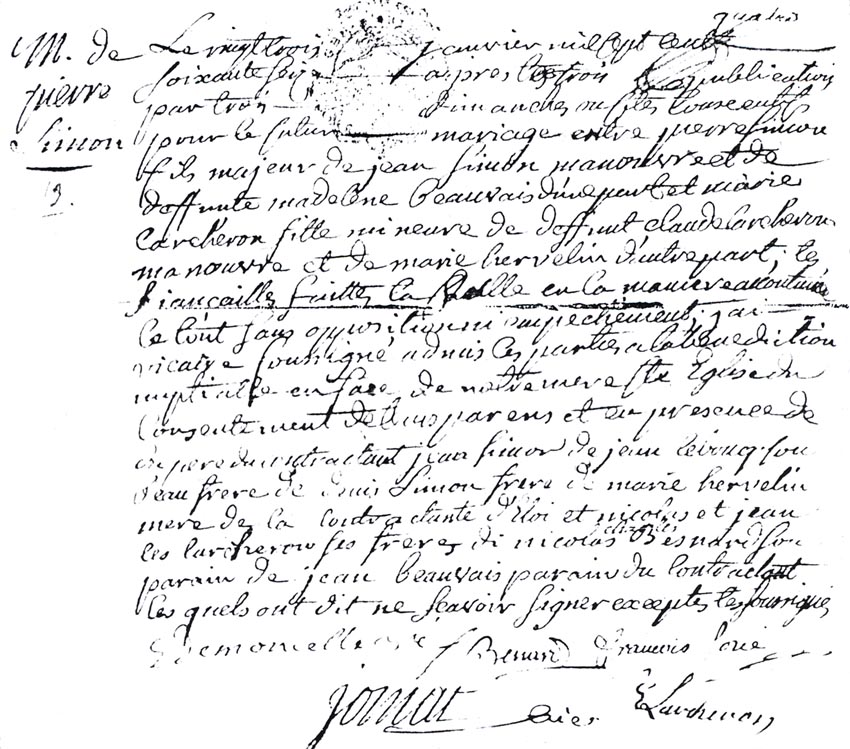 quatre
M. de
pierre
Simon
3.
Le vingt trois janvier mil sept cent
soixante seize apres les trois publications
par trois dimanches
pour le futur mariage entre pierre Simon
fils majeur de jean Simon manouvre et de
deffunte madelene beauvais d'une part et marie
Larcheron fille mineure de deffunt claude Larcheron
manouvre et de marie hervelin d'autre part, les
fiançailles faittes la veille en la maniere accoutumée
le tout sans opposition ni empechement, j'ai
vicaire soussigné admis les parties a la benediction
nuptialle en face de notre mere Ste Eglise du
consentement de leurs parens et en presence de
du pere du contractant jean Simon de jean son
beau frere de denis Simon frere de marie hervelin
mere de la contractante d'Eloi et nicolas et jean
les Larcheron ses freres de nicolas Besnard son
parain de jean beauvais parain du contractant
les quels ont dit ne scavoir signer exceptes les soussignés
Benard francois
jomat Larcheron